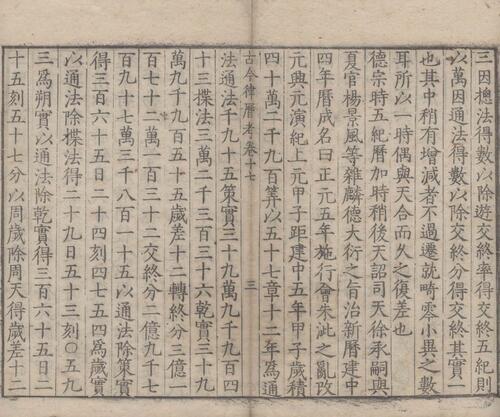 三因總法得數以除遊交終率得交終五紀則
以萬因通法得數以除交終分得交終其實一
也其中稍有增減者不過遷就畸零小異之數
耳所以一時偶與天合而久之復差也
德宗時五紀曆加時稍後天詔司天徐承嗣與
夏官楊景風等雜麟德大衍之旨治新曆建中
四年曆成名曰正元五年施行會朱泚之亂改
元興元演紀上元甲子距建中五年甲子歲積
四十萬二千九百算以五十七章十二年爲通
古今律曆考卷十七 三
法通法千九十五策實三十九萬九千九百四
十三揲法三萬二千三百三十六乾實三十九
萬九千九百五十五歲差十二轉終分三億一
百七十二萬一百三十二交終分二億九千七
百九十七萬三千八百一十五以通法除策實
得三百六十五日二十四刻四七五四爲歲實
以通法除揲法得二十九日五十三刻〇五九
三爲朔實以通法除乾實得三百六十五日二
十五刻五十七分以周歲除周天得歲差十二